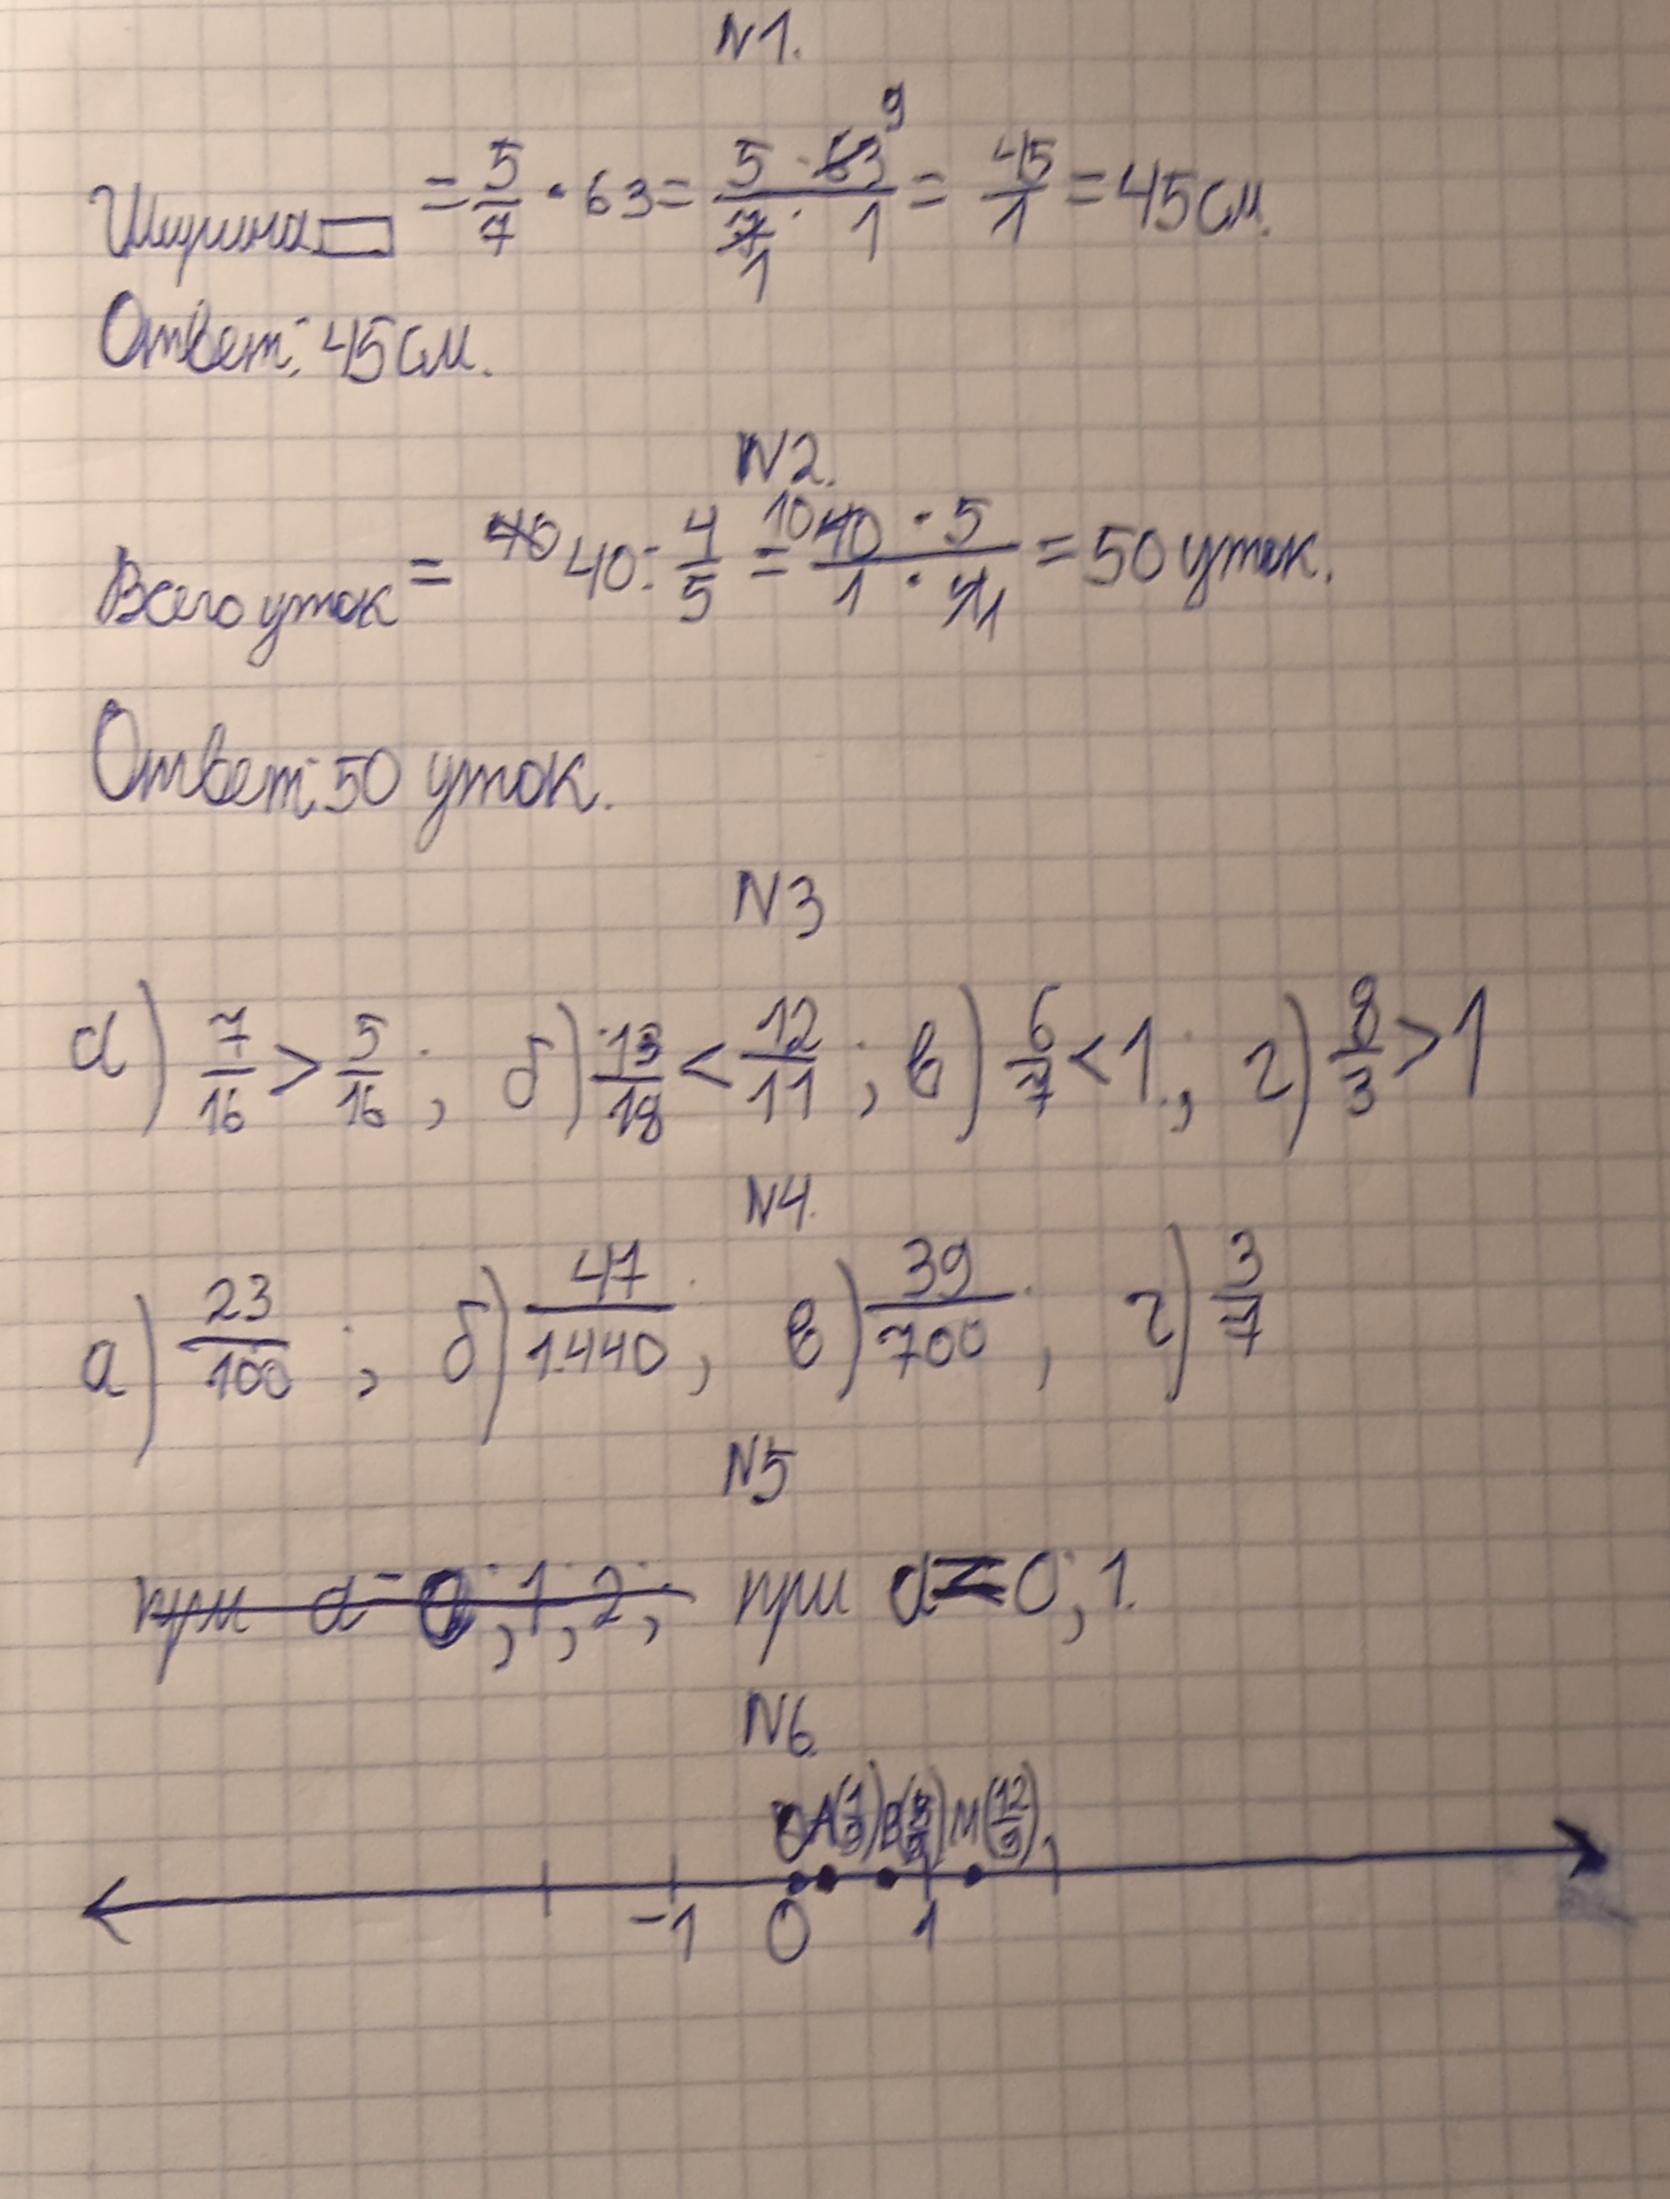 N1.
Ширина▭ = 5/7 · 63 = 5 · 63 9 / 7 1 · 1 = 45/1 = 45 см.
Ответ: 45 см.
N2.
Всего уток = 40 40 : 4/5 = 10 40 · 5 / 1 · 4 1 = 50 уток.
Ответ: 50 уток.
N3
а) 7/16 > 5/16; б) 13/18 < 12/11; в) 6/7 < 1.; г) 8/3 > 1
N4.
а) 23/100; б) 47/1.440; в) 39/700; г) 3/7
N5
при а = 0; 1; 2; при а = 0; 1.
N6.
0 A(1/9) B(/9) M(12/9)
-1 0 1